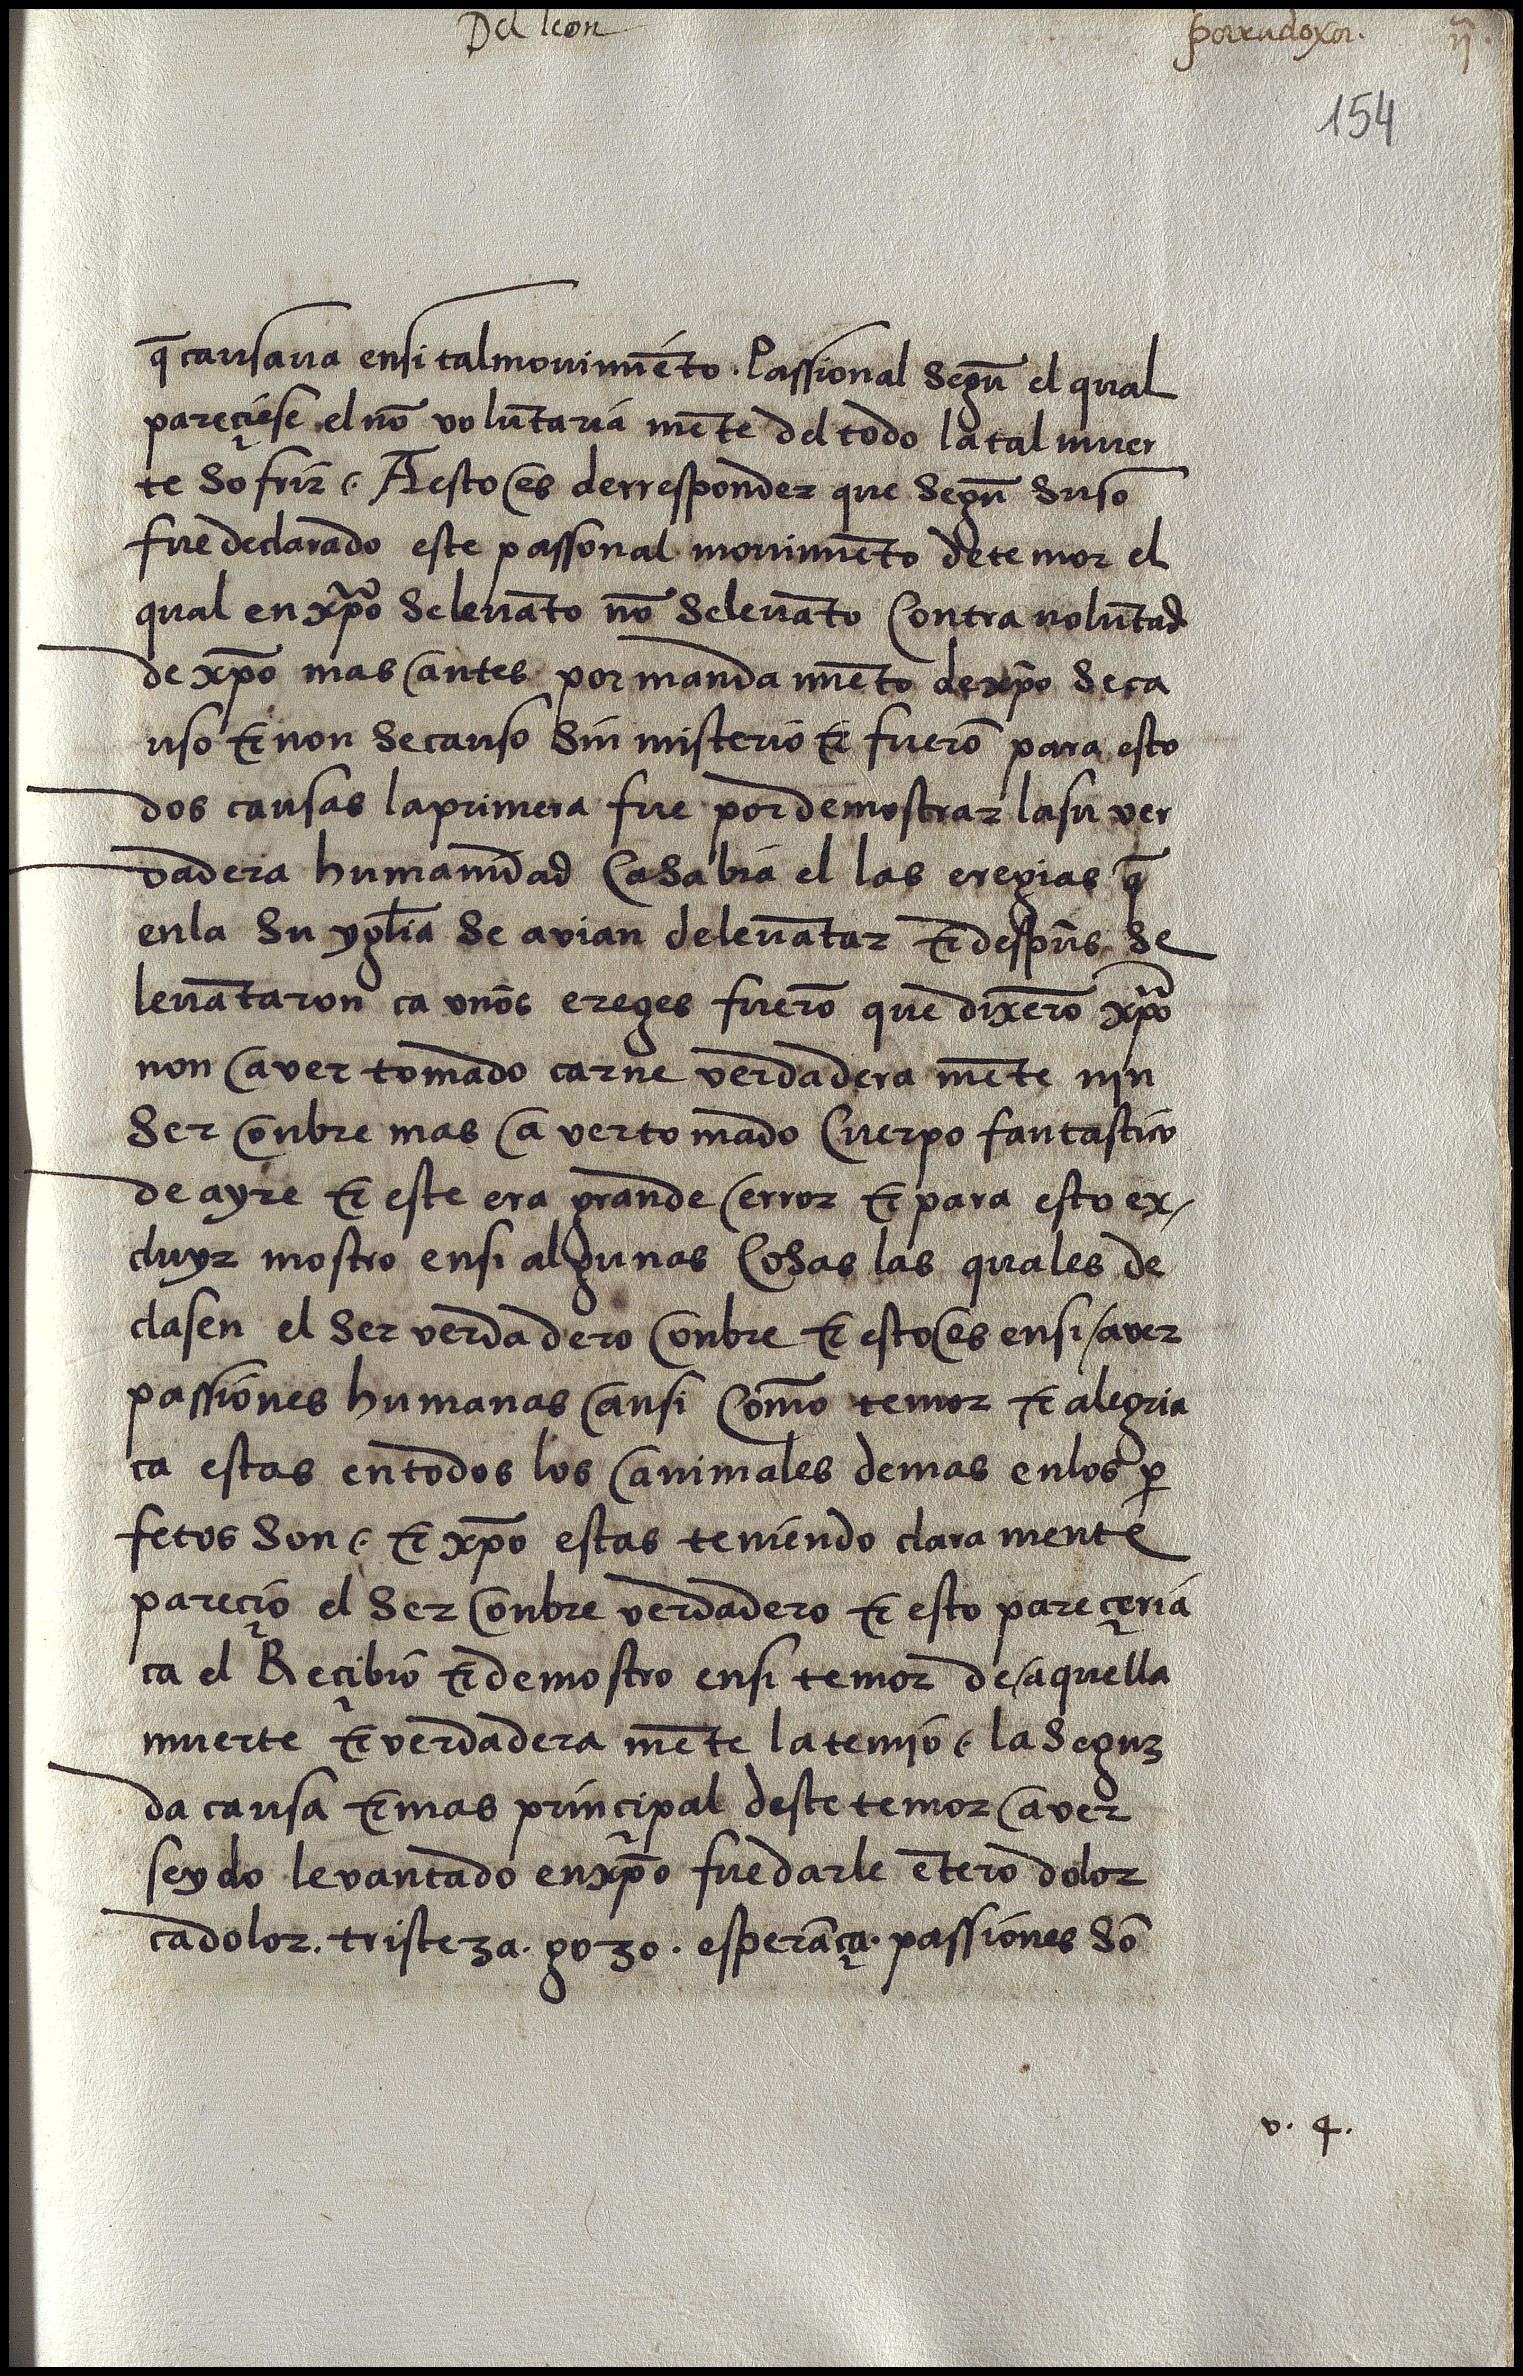 Del leon
paradoxa. ij.
154
q̃ causaua ensi talmouimiẽto. Passional Segũ el qual
pareçiese el nõ volũtaria mẽte del todo la tal muer
te Sofrir. A esto es derresponder que Segũ Suso
fue declarado este passonal mouimiẽto de temor el
qual en xp̃o Seleuãto nõ Seleuãto Contra volũtad
de xp̃o mas antes por manda miẽto de xp̃o Se ca
uso ⁊ non Se causo Sin misterio ⁊ fuerõ para esto
dos causas la primera fue por demostrar la su ver
dadera humanidad Ca Sabia el las eregias q̃
enla Su ygl̃ia Se avian de leuãtar ⁊ desp̃us Se
leuãtaron ca vnõs ereges fuerõ que dixerõ xp̃o
non aver tomado carne verdadera mẽte nin
Ser onbre mas a ver to mado Cuerpo fantastico
de ayre ⁊ este era grande error ⁊ para esto ex/
cluyr mostro ensi algunas Cosas las quales de
clasen el Ser verdadero onbre ⁊ esto es ensi /aver
passiones humanas ansi Com̃o temor ⁊ alegria
ca estas en todos los animales demas enlos ꝑ
fetos Son. ⁊ xp̃o estas teniendo clara mente
pareçio el Ser onbre verdadero ⁊ esto pareçeria
ca el Reçibio ⁊ demostro ensi temor de /aquella
muerte ⁊ verdadera mẽte la temio. la Segun
da causa ⁊ mas prinçipal deste temor aver
seydo levantado en xp̃o fue darle ẽtero dolor
ca dolor. tristeza. gozo. esperãça. passiones Sõ
v. 4.